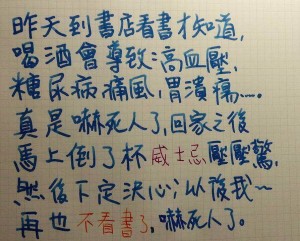 昨天到書店看書才知道,
喝酒會導致高血壓,
糖尿病,痛風,胃潰瘍.....
真是嚇死人了,回家之後
馬上倒了杯威士忌壓壓驚,
然後下定決心;以後我~
再也不看書了,嚇死人了。